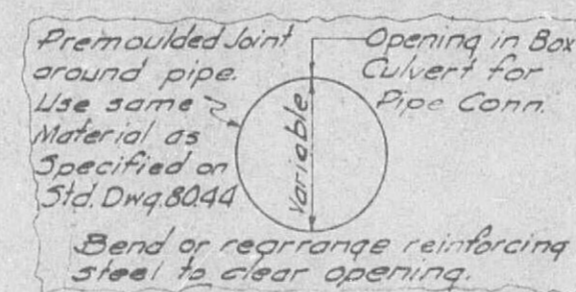 Premoulded Joint
around pipe.
Use same
Material as
Specified on
Std. Dwg. 8044
Opening in Box
Culvert for
Pipe Conn.
Variable
Bend or rearrange reinforcing
steel to clear opening.